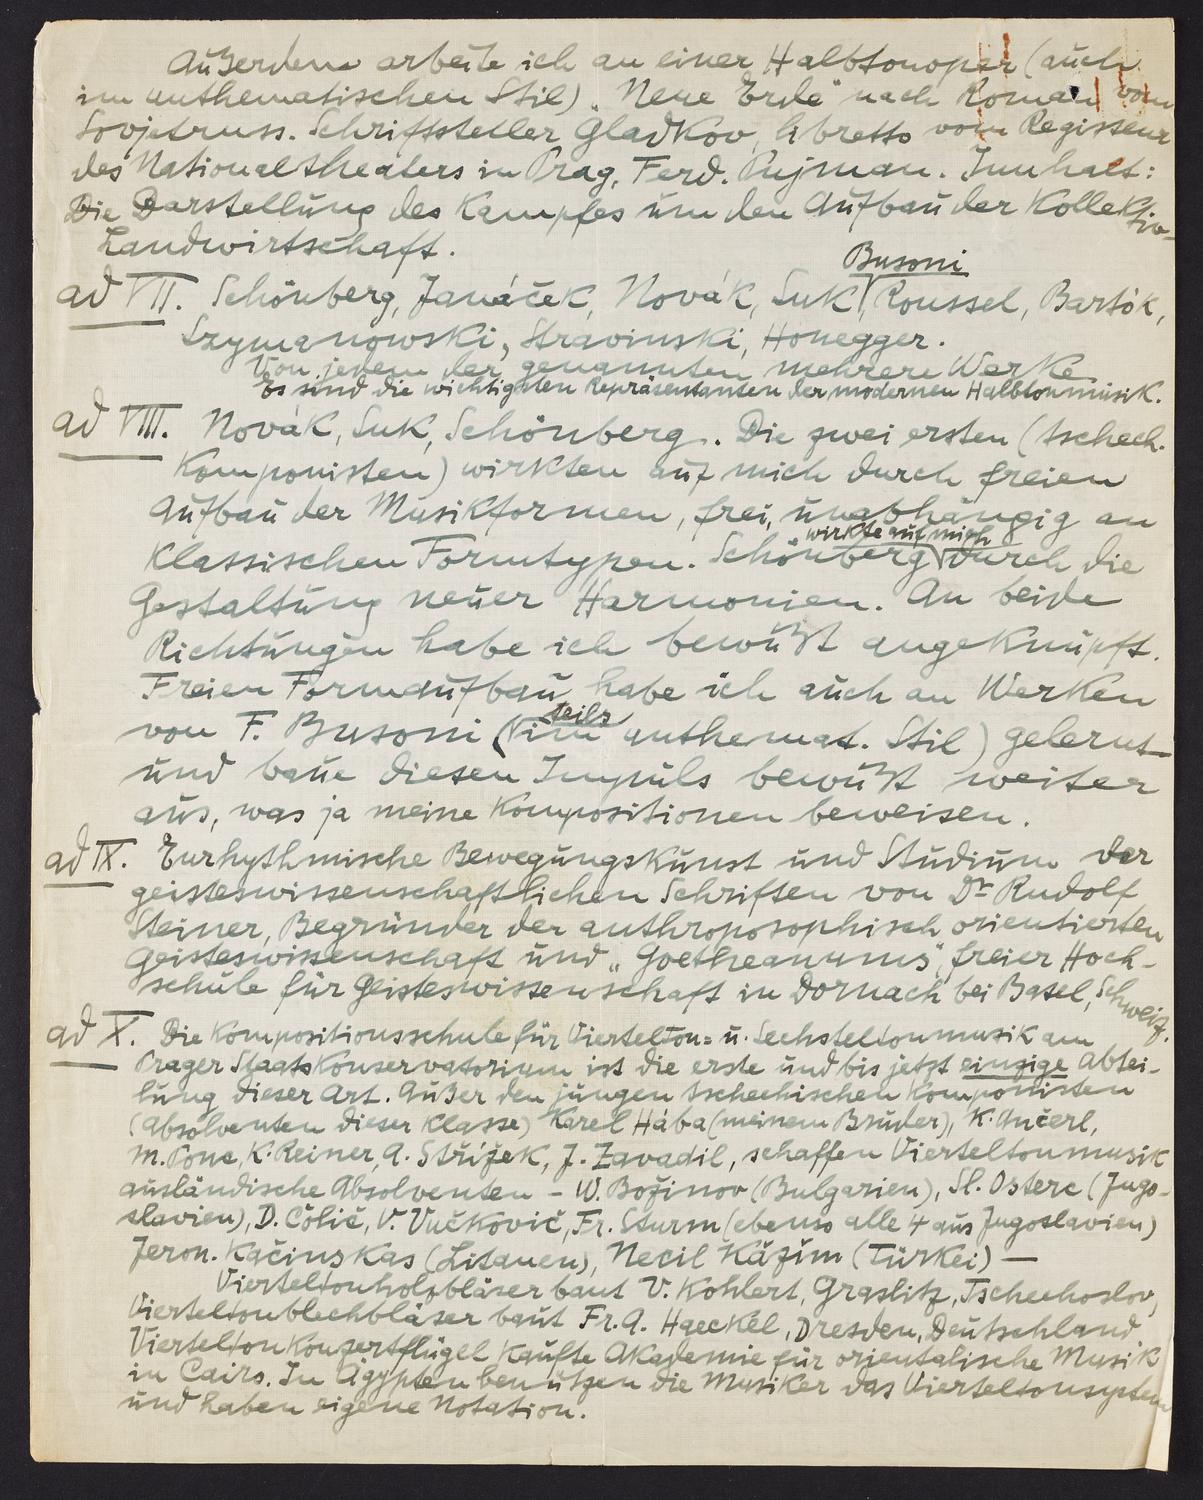 Außerdem arbeite ich an einer Halbtonoper (auch
im unthematischen Stil) „Neue Erde" nach Roman vom
Sovjetruss. Schriftsteller Gladkov, libretto vom Regisseur
des Nationaltheaters in Prag, Ferd. Pujman. Innhalt:
Die Darstellung des Kampfes um den Aufbau der Kollektiv-
Landwirtschaft.
Busoni
ad VII. Schönberg, Janáček, Novák, Suk, Roussel, Bartók,
Szymanowski, Stravinski, Honegger.
Von jedem der genannten mehrere Werke
Es sind die wichtigsten Repräsentanten der modernen Halbtonmusik.
ad VIII. Novák, Suk, Schönberg. Die zwei ersten (tschech.
Komponisten) wirkten auf mich durch freien
Aufbau der Musikformen, frei, unabhängig an
wirkte auf mich
Klassischen Formtypen. Schönberg durch die
Gestaltung neuer Harmonien. An beide
Richtungen habe ich bewußt angeknüpft.
Freien Formaufbau habe ich auch an Werken
teils
von F. Busoni (im unthemat. Stil) gelernt
und baue diesen Impuls bewußt weiter
aus, was ja meine Kompositionen beweisen.
ad IX. Eurhythmische Bewegungskunst und Studium der
geisteswissenschaftlichen Schriften von Dr Rudolf
Steiner, Begründer der anthroposophisch orientierten
Geisteswissenschaft und „Goetheanums", freier Hoch-
schule für Geisteswissenschaft in Dornach bei Basel, Schweiz.
ad X. Die Kompositionsschule für Viertelton= u. Sechsteltonmusik am
Prager Staatskonservatorium ist die erste und bis jetzt einzige Abtei-
lung dieser Art. Außer den jungen tschechischen Komponisten
(Absolventen dieser Klasse) Karel Hába (meinem Bruder), K. Ančerl,
M. Ponc, K. Reiner, A. Střížek, J. Zavadil, schaffen Vierteltonmusik
ausländische Absolventen – W. Božinov (Bulgarien), Sl. Osterc (Jugo-
slavien), D. Čolić, V. Vučković, Fr. Sturm (ebenso alle 4 aus Jugoslavien)
Jeron. Kačinskas (Litauen), Necil Kâzim (Türkei) —
Vierteltonholzbläser baut V. Kohlert, Graslitz, Tschechoslov,
Vierteltonblechbläser baut Fr. A. Haeckel, Dresden, Deutschland.
Viertelton Konzertflügel kaufte Akademie für orientalische Musik
in Cairo. In Ägypten benützen die Musiker das Vierteltonsystem
und haben eigene Notation.